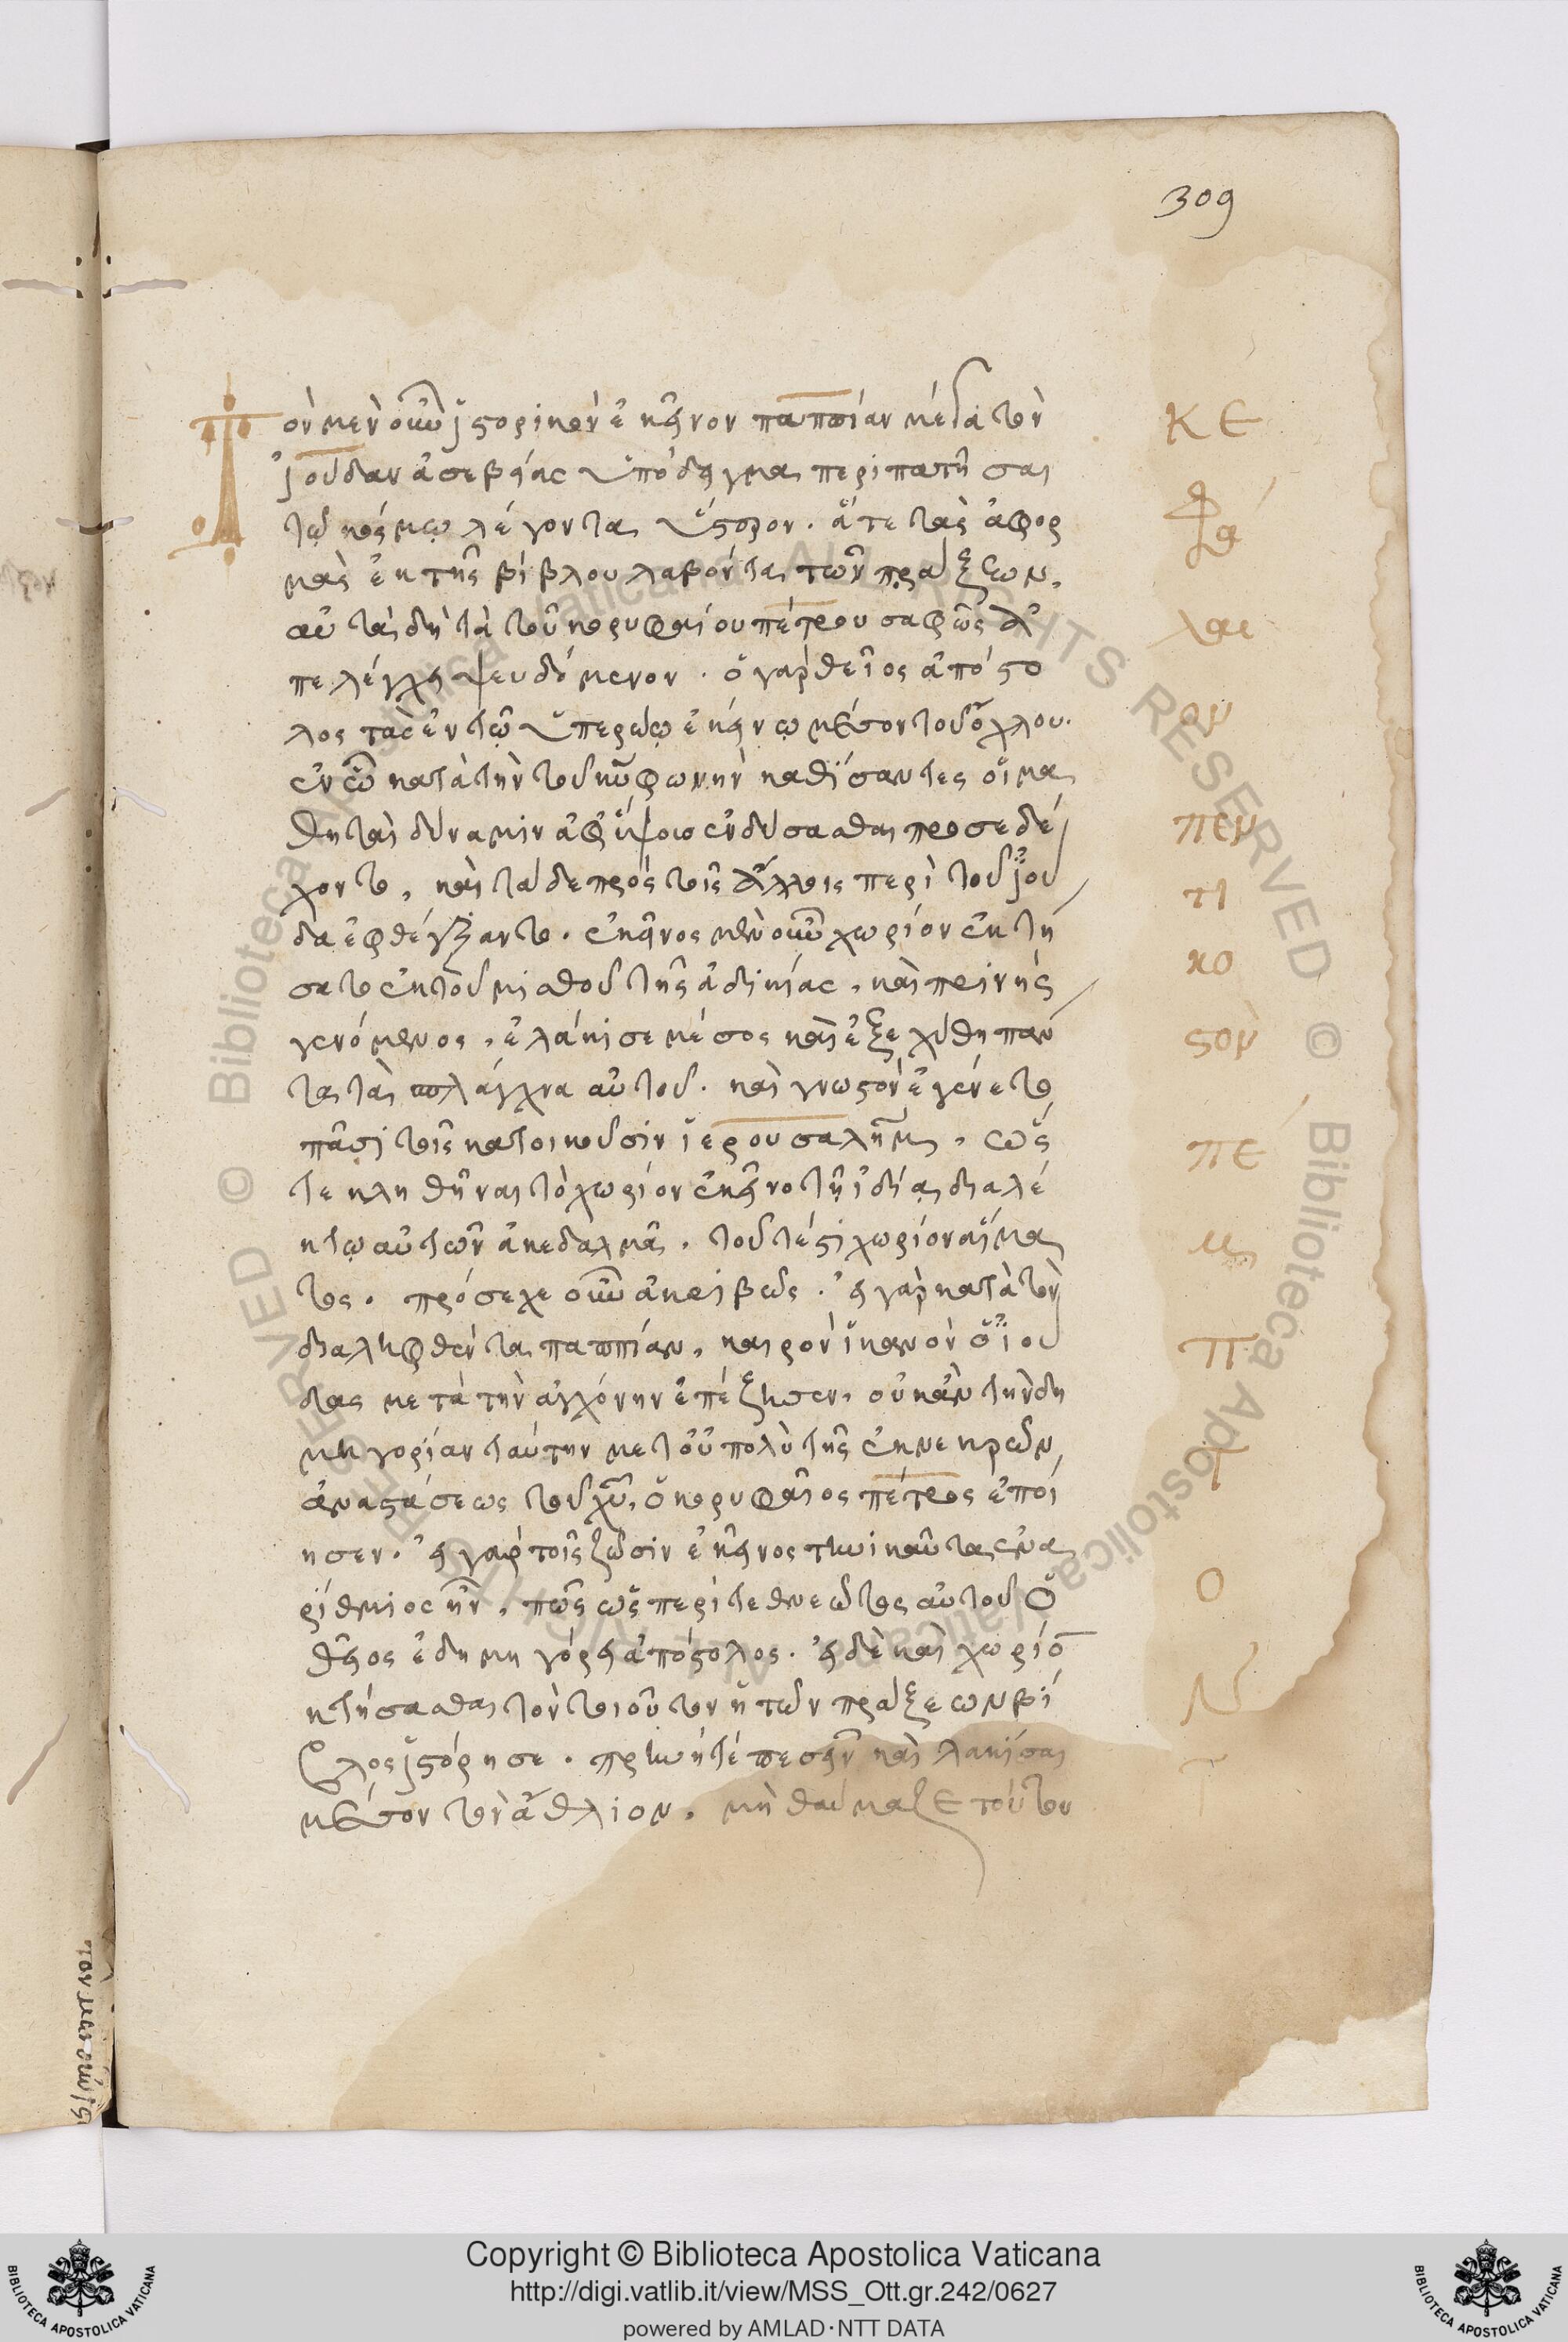 309
Τὸν μὲν οὖν ἱστορικὸν ἐκεῖνον παππίαν μέγα τὸν
ἰούδαν ἀσεβείας ὑπόδειγμα περιπατῆσαι
τῷ κόσμῳ λέγοντα ὕστερον. ἅτε τὰς ἀφορ
μὰς ἐκ τῆς βίβλου λαβόντα τῶν πράξεων,
αὐτὰ δὴ τὰ τοῦ κορυφαίου πέτρου σαφῶς ἀ
πελέγχει ψευδόμενον. ὁ γὰρ θεῖος ἀπόστο
λος στὰς ἐν τῷ ὑπερώῳ ἐκείνῳ μέσον τοῦ ὄχλου.
ἐν ᾧ κατὰ τὴν τοῦ κυ φωνὴν καθίσαντες οἱ μα
θηταὶ δύναμιν ἀφ' ὕψους ἐνδύσασθαι προσεδέ
χοντο, καὶ τάδε πρὸς τοῖς ἄλλοις περὶ τοῦ ἰού
δα ἐφθέγξαντο. ἐκεῖνος μὲν οὖν χωρίον ἐκτή
σατο ἐκ τοῦ μισθοῦ τῆς ἀδικίας, καὶ πρινὴς
γενόμενος, ἐλάκισε μέσος καὶ ἐξεχύθη πάν
τα τὰ σπλάγχνα αὐτοῦ. καὶ γνωστὸν ἐγένετο
πᾶσι τοῖς κατοικοῦσιν ἱερουσαλήμ, ὥς
τε κληθῆναι τὸ χωρίον ἐκεῖνο τῇ ἰδίᾳ διαλέ
κτῳ αὐτῶν ἀκεδαλμᾶ. τοῦτέστι χωρίον αἵμα
τος. πρόσεχε οὖν ἀκριβῶς. εἰ γὰρ κατὰ τὸν
διαληφθέντα παππίαν, καιρὸν ἱκανὸν ὁ ἰού
δας μετὰ τὴν ἀγχόνην ἐπέζησεν, οὐκ ἂν τὴν δη
μηγορίαν ταύτην μετ' οὐ πολὺ τῆς ἐκ νεκρῶν
ἀναστάσεως τοῦ χυ, ὁ κορυφαῖος πέτρος ἐποί
ησεν. εἰ γὰρ τοῖς ζῶσιν ἐκεῖνος τηνικαῦτα ἐνα
ρίθμιος ἦν, πῶς ὡς περὶ τεθνεῶτος αὐτοῦ ὁ
θεῖος ἐδημηγόρει ἀπόστολος. εἰ δὲ καὶ χωρίον
κτήσασθαι τὸν τοιοῦτον ἡ τῶν πράξεων βί
βλος ἱστόρησε. πρηνῆ τέ πεσεῖν καὶ λακίσαι
μέσον τὸν ἄθλιον, μὴ θαύμαζε τοῦτον
ΚΕ
Φά
λαι
ον
πεν
τι
κο
στὸν
πέ
μ
π
τ
ο
ν
τ
Copyright © Biblioteca Apostolica Vaticana
http://digi.vatlib.it/view/MSS_Ott.gr.242/0627
powered by AMLAD·NTT DATA